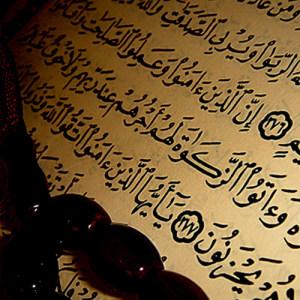 ٱلرِّبَوٰا۟ وَيُرْبِى ٱلصَّدَقَٰتِ وَٱللَّهُ
٢٧٦ إِنَّ ٱلَّذِينَ ءَامَنُوا۟ وَعَمِلُوا۟ ٱلصَّٰلِحَٰتِ
وَءَاتَوُا۟ ٱلزَّكَوٰةَ لَهُمْ أَجْرُهُمْ عِندَ رَبِّهِمْ وَلَا خَوْفٌ
يَحْزَنُونَ ٢٧٧ يَٰٓأَيُّهَا ٱلَّذِينَ ءَامَنُوا۟ ٱتَّقُوا۟ ٱللَّهَ وَذَرُوا۟